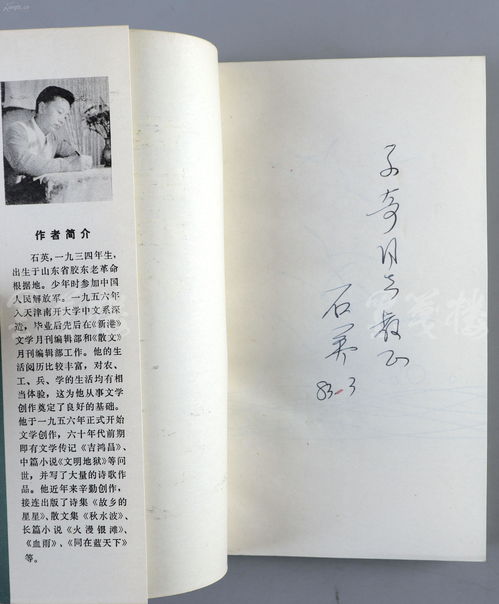 作者简介
石英，一九三四年生，
出生于山东省胶东老革命
根据地。少年时参加中国
人民解放军。一九五六年
入天津南开大学中文系深
造，毕业后先后在《新港》
文学月刊编辑部和《散文》
月刊编辑部工作。他的生
活阅历比较丰富，对农、
工、兵、学的生活均有相
当体验，这为他从事文学
创作奠定了良好的基础。
他于一九五六年正式开始
文学创作，六十年代前期
即有文学传记《吉鸿昌》、
中篇小说《文明地狱》等问
世，并写了大量的诗歌作
品。他近年来辛勤创作，
接连出版了诗集《故乡的
星星》、散文集《秋水波》、
长篇小说《火漫银滩》、
《血雨》、《同在蓝天下》
等。
子奇同志教正
石英
83-3